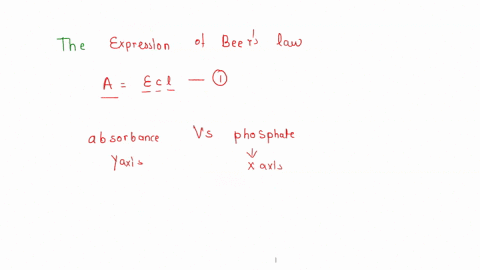 The Expression of Beer's law
A = εcl — ①
absorbance Vs phosphate
Yaxis ↓ x axis